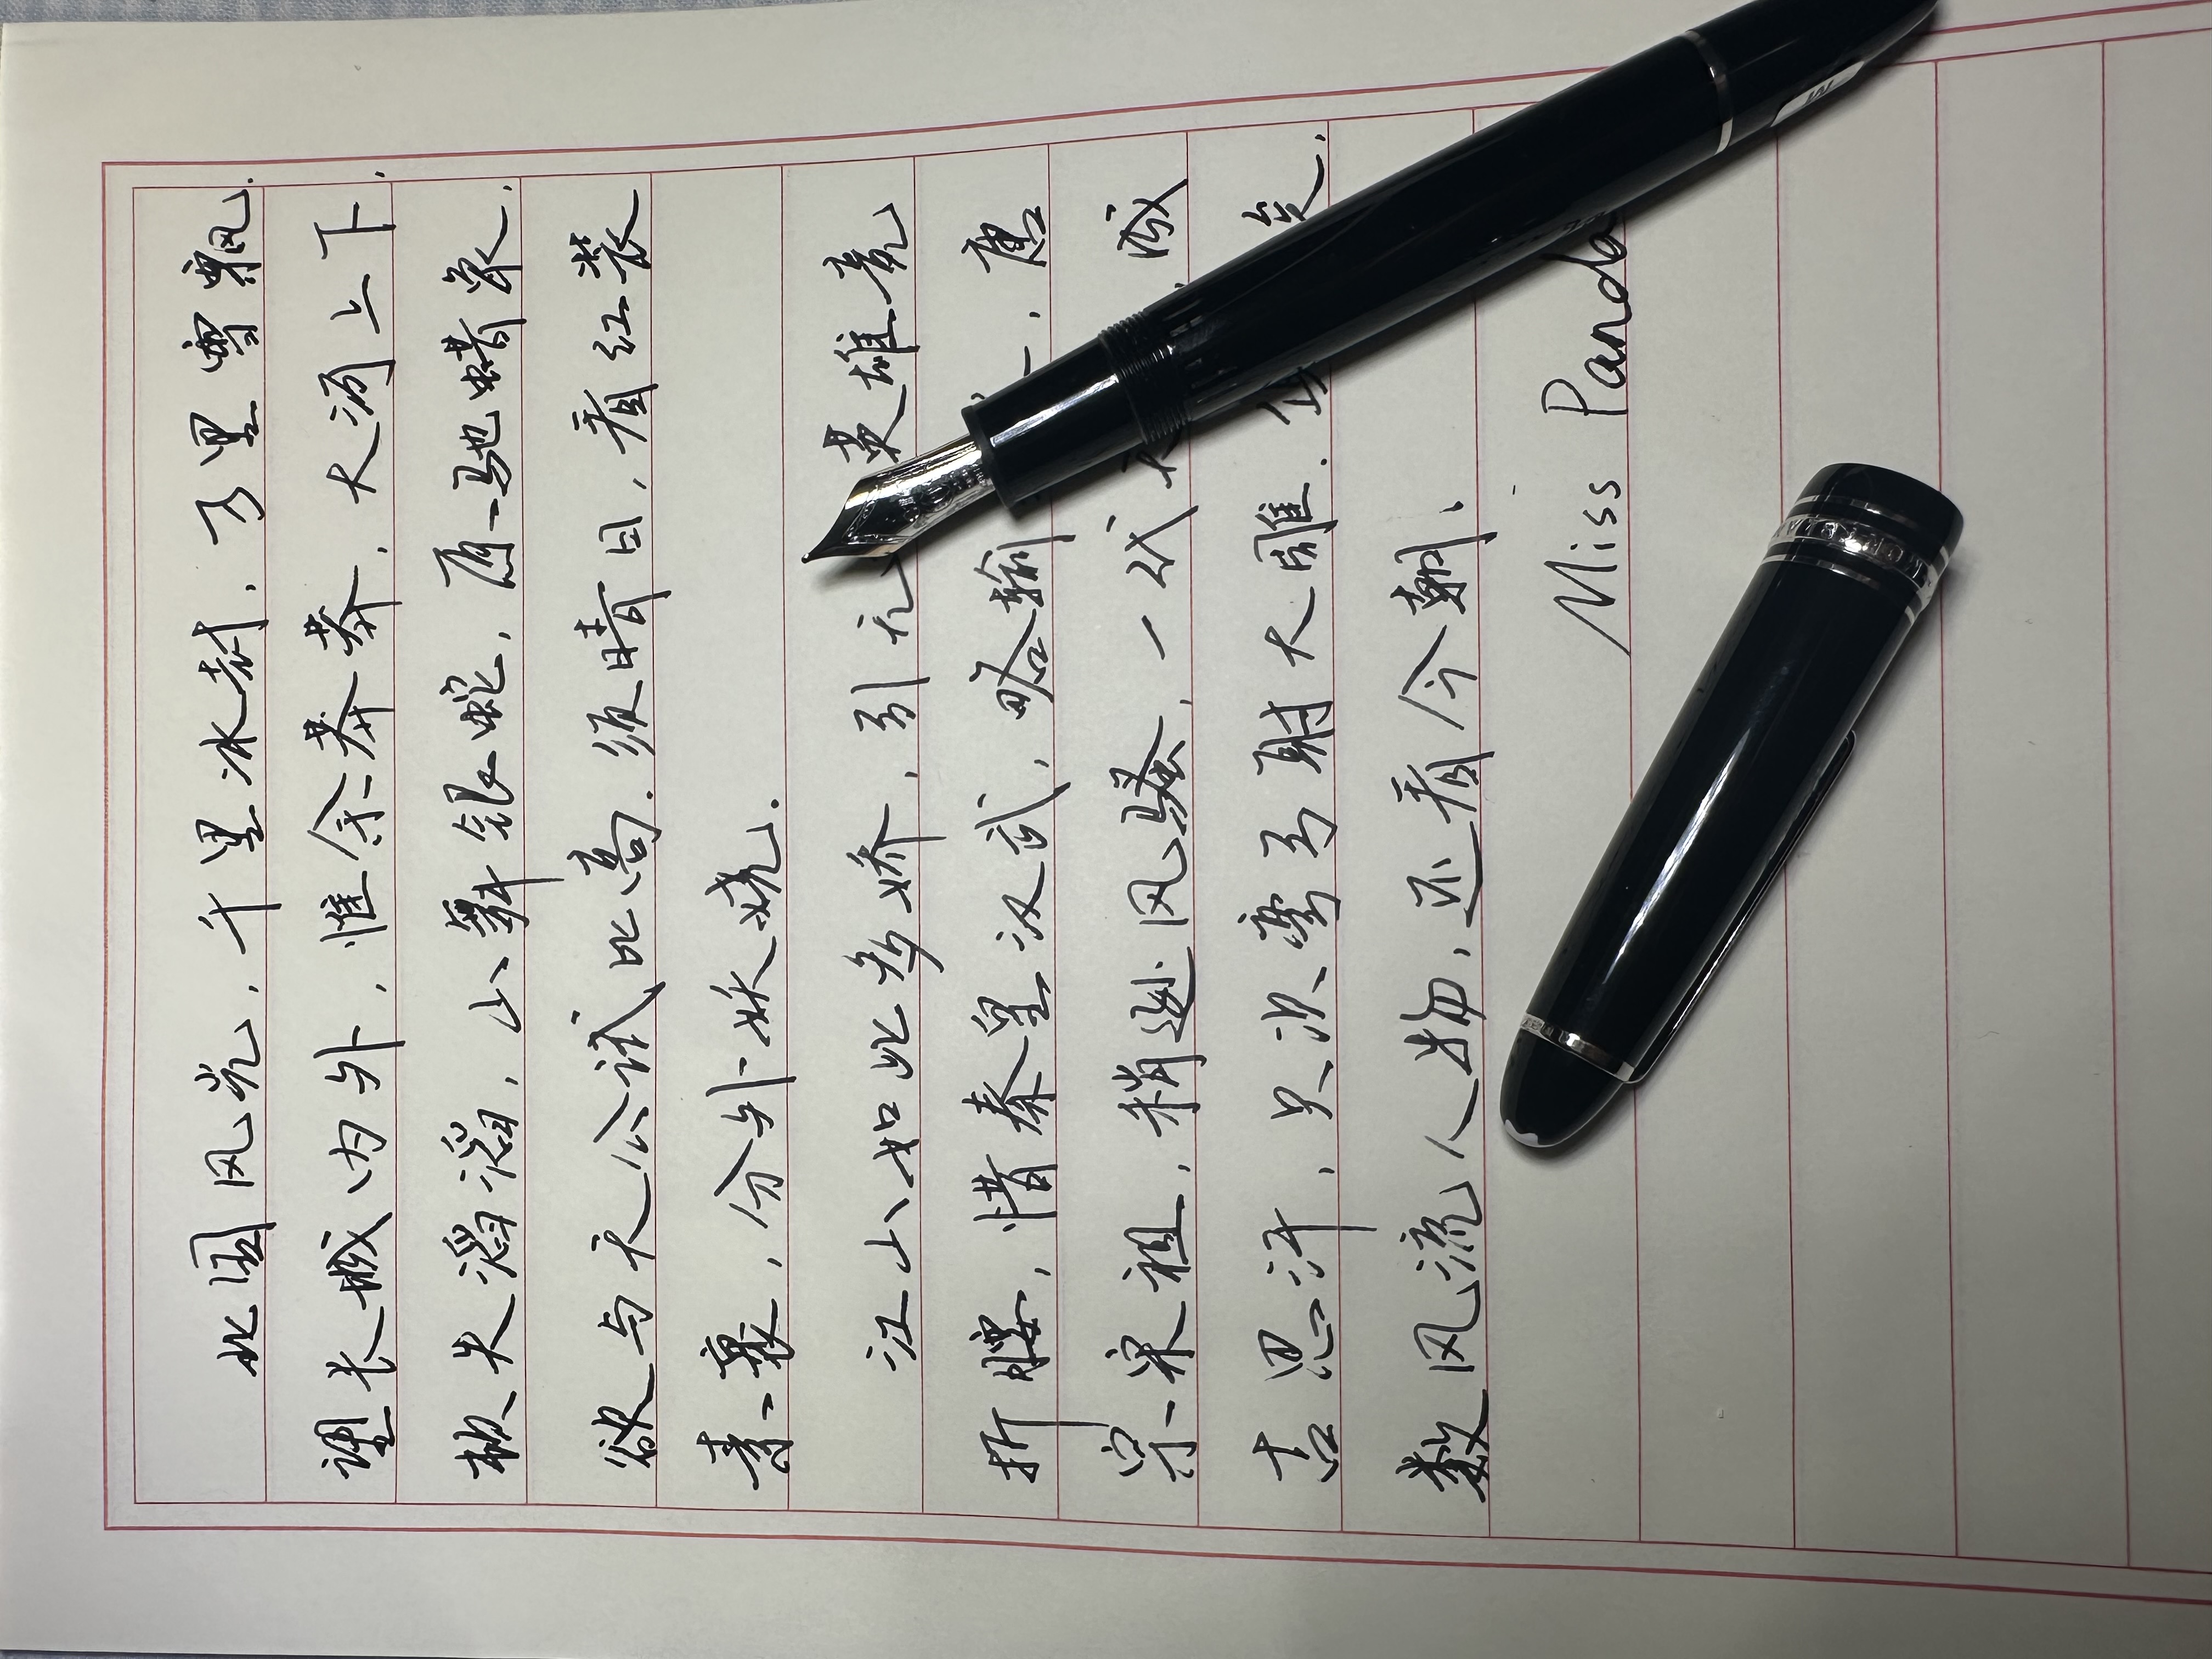 北国风光，千里冰封，万里雪飘．
望长城内外，惟余莽莽，大河上下，
顿失滔滔，山舞银蛇，原驰蜡象，
欲与天公试比高．须晴日，看红装
素裹，分外妖娆．
江山如此多娇，引无 英雄竞
折腰，惜秦皇汉武，略输 ，唐
宗宋祖，稍逊风骚，一代天 ，成
吉思汗，只识弯弓射大雕． 矣，
数风流人物，还看今朝．
Miss Panda
M